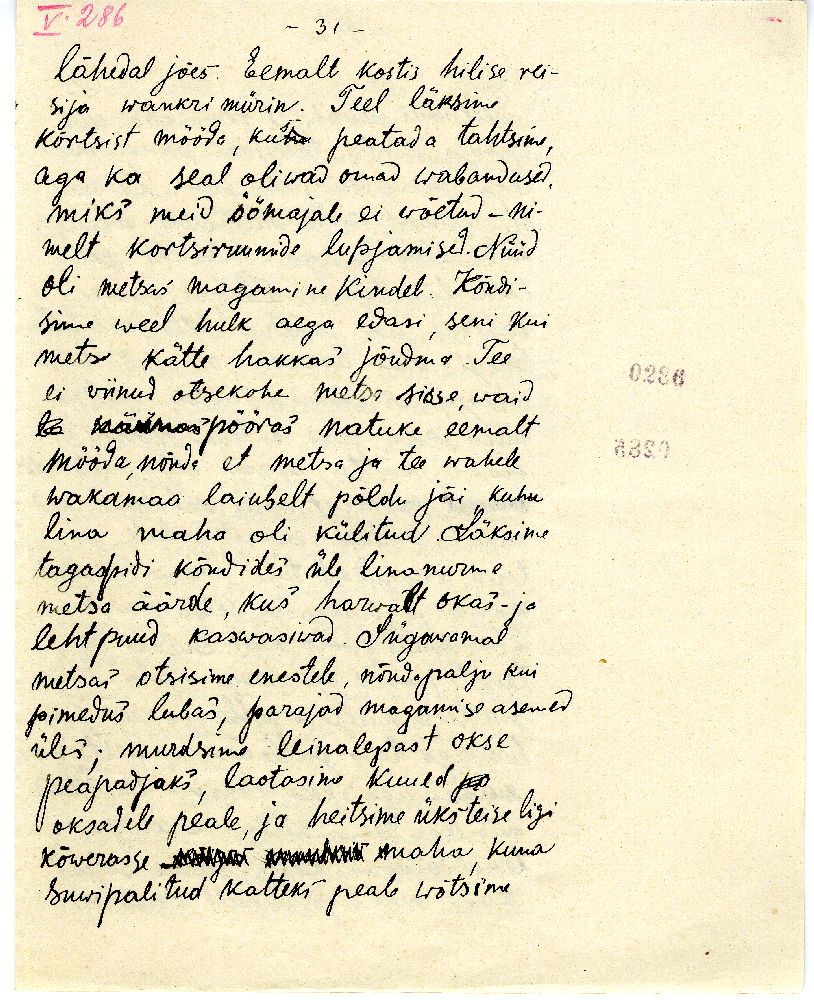 V. 286
- 31 -
lähedal jões. Eemalt kostis hilise rei-
sija wankri mürin. Teel läksime
kõrtsist mööda, kuhu peatada tahtsime,
aga ka seal oliwad omad wabandused,
miks meid öömajale ei wõetud - ni-
melt kortsiruumide lupjamised. Nüüd
oli metsas magamine kindel. Kõndi-
sime weel hulk aega edasi, seni kui
mets kätte hakkas jõudma. Tee
ei wiinud otsekohe metsa sisse, waid
pööras natuke eemalt
mööda, nõnda et metsa ja tee wahele
wakamaa laiuselt põldu jäi, kuhu
lina maha oli külitud. Läksime
tagaspidi kõndides üle linanurme
metsa äärde, kus harwalt okas- ja
lehtpuud kaswasiwad. Sügawamal
metsas otsisime enestele, nõndapalju kui
pimedus lubas, parajad magamise asemed
üles; murdsime leinalepast okse
peapadjaks, laotasime kuued
oksadele peale, ja heitsime üksteise ligi
kõwerasse maha, kuna
suwipalitud katteks peale wõtsime
0286
0285